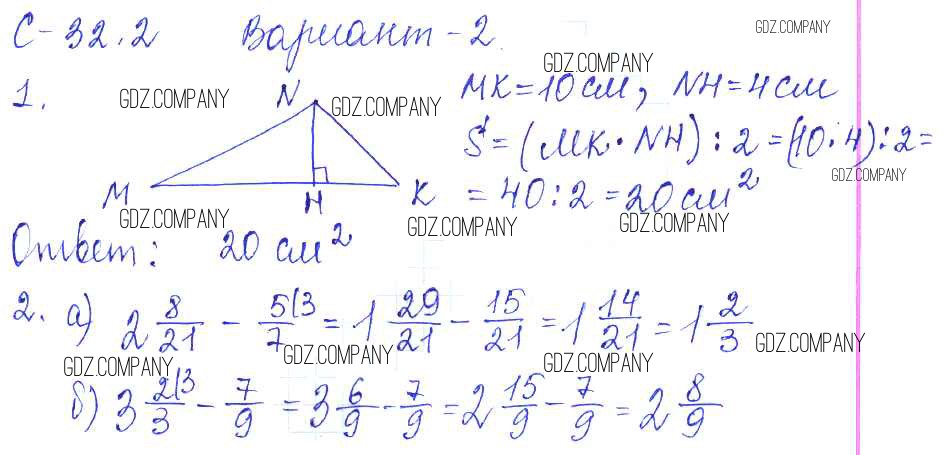 С-32.2 Вариант-2. GDZ.COMPANY
GDZ.COMPANY
1. GDZ.COMPANY N GDZ.COMPANY MK = 10 см, NH = 4 см
S = (MK · NH) : 2 = (10 · 4) : 2 =
GDZ.COMPANY
M H K = 40 : 2 = 20 см²
GDZ.COMPANY GDZ.COMPANY GDZ.COMPANY
Ответ: 20 см²
2. а) 2 8/21 - 5\3/7 = 1 29/21 - 15/21 = 1 14/21 = 1 2/3
GDZ.COMPANY GDZ.COMPANY GDZ.COMPANY GDZ.COMPANY
б) 3 2\3/3 - 7/9 = 3 6/9 - 7/9 = 2 15/9 - 7/9 = 2 8/9